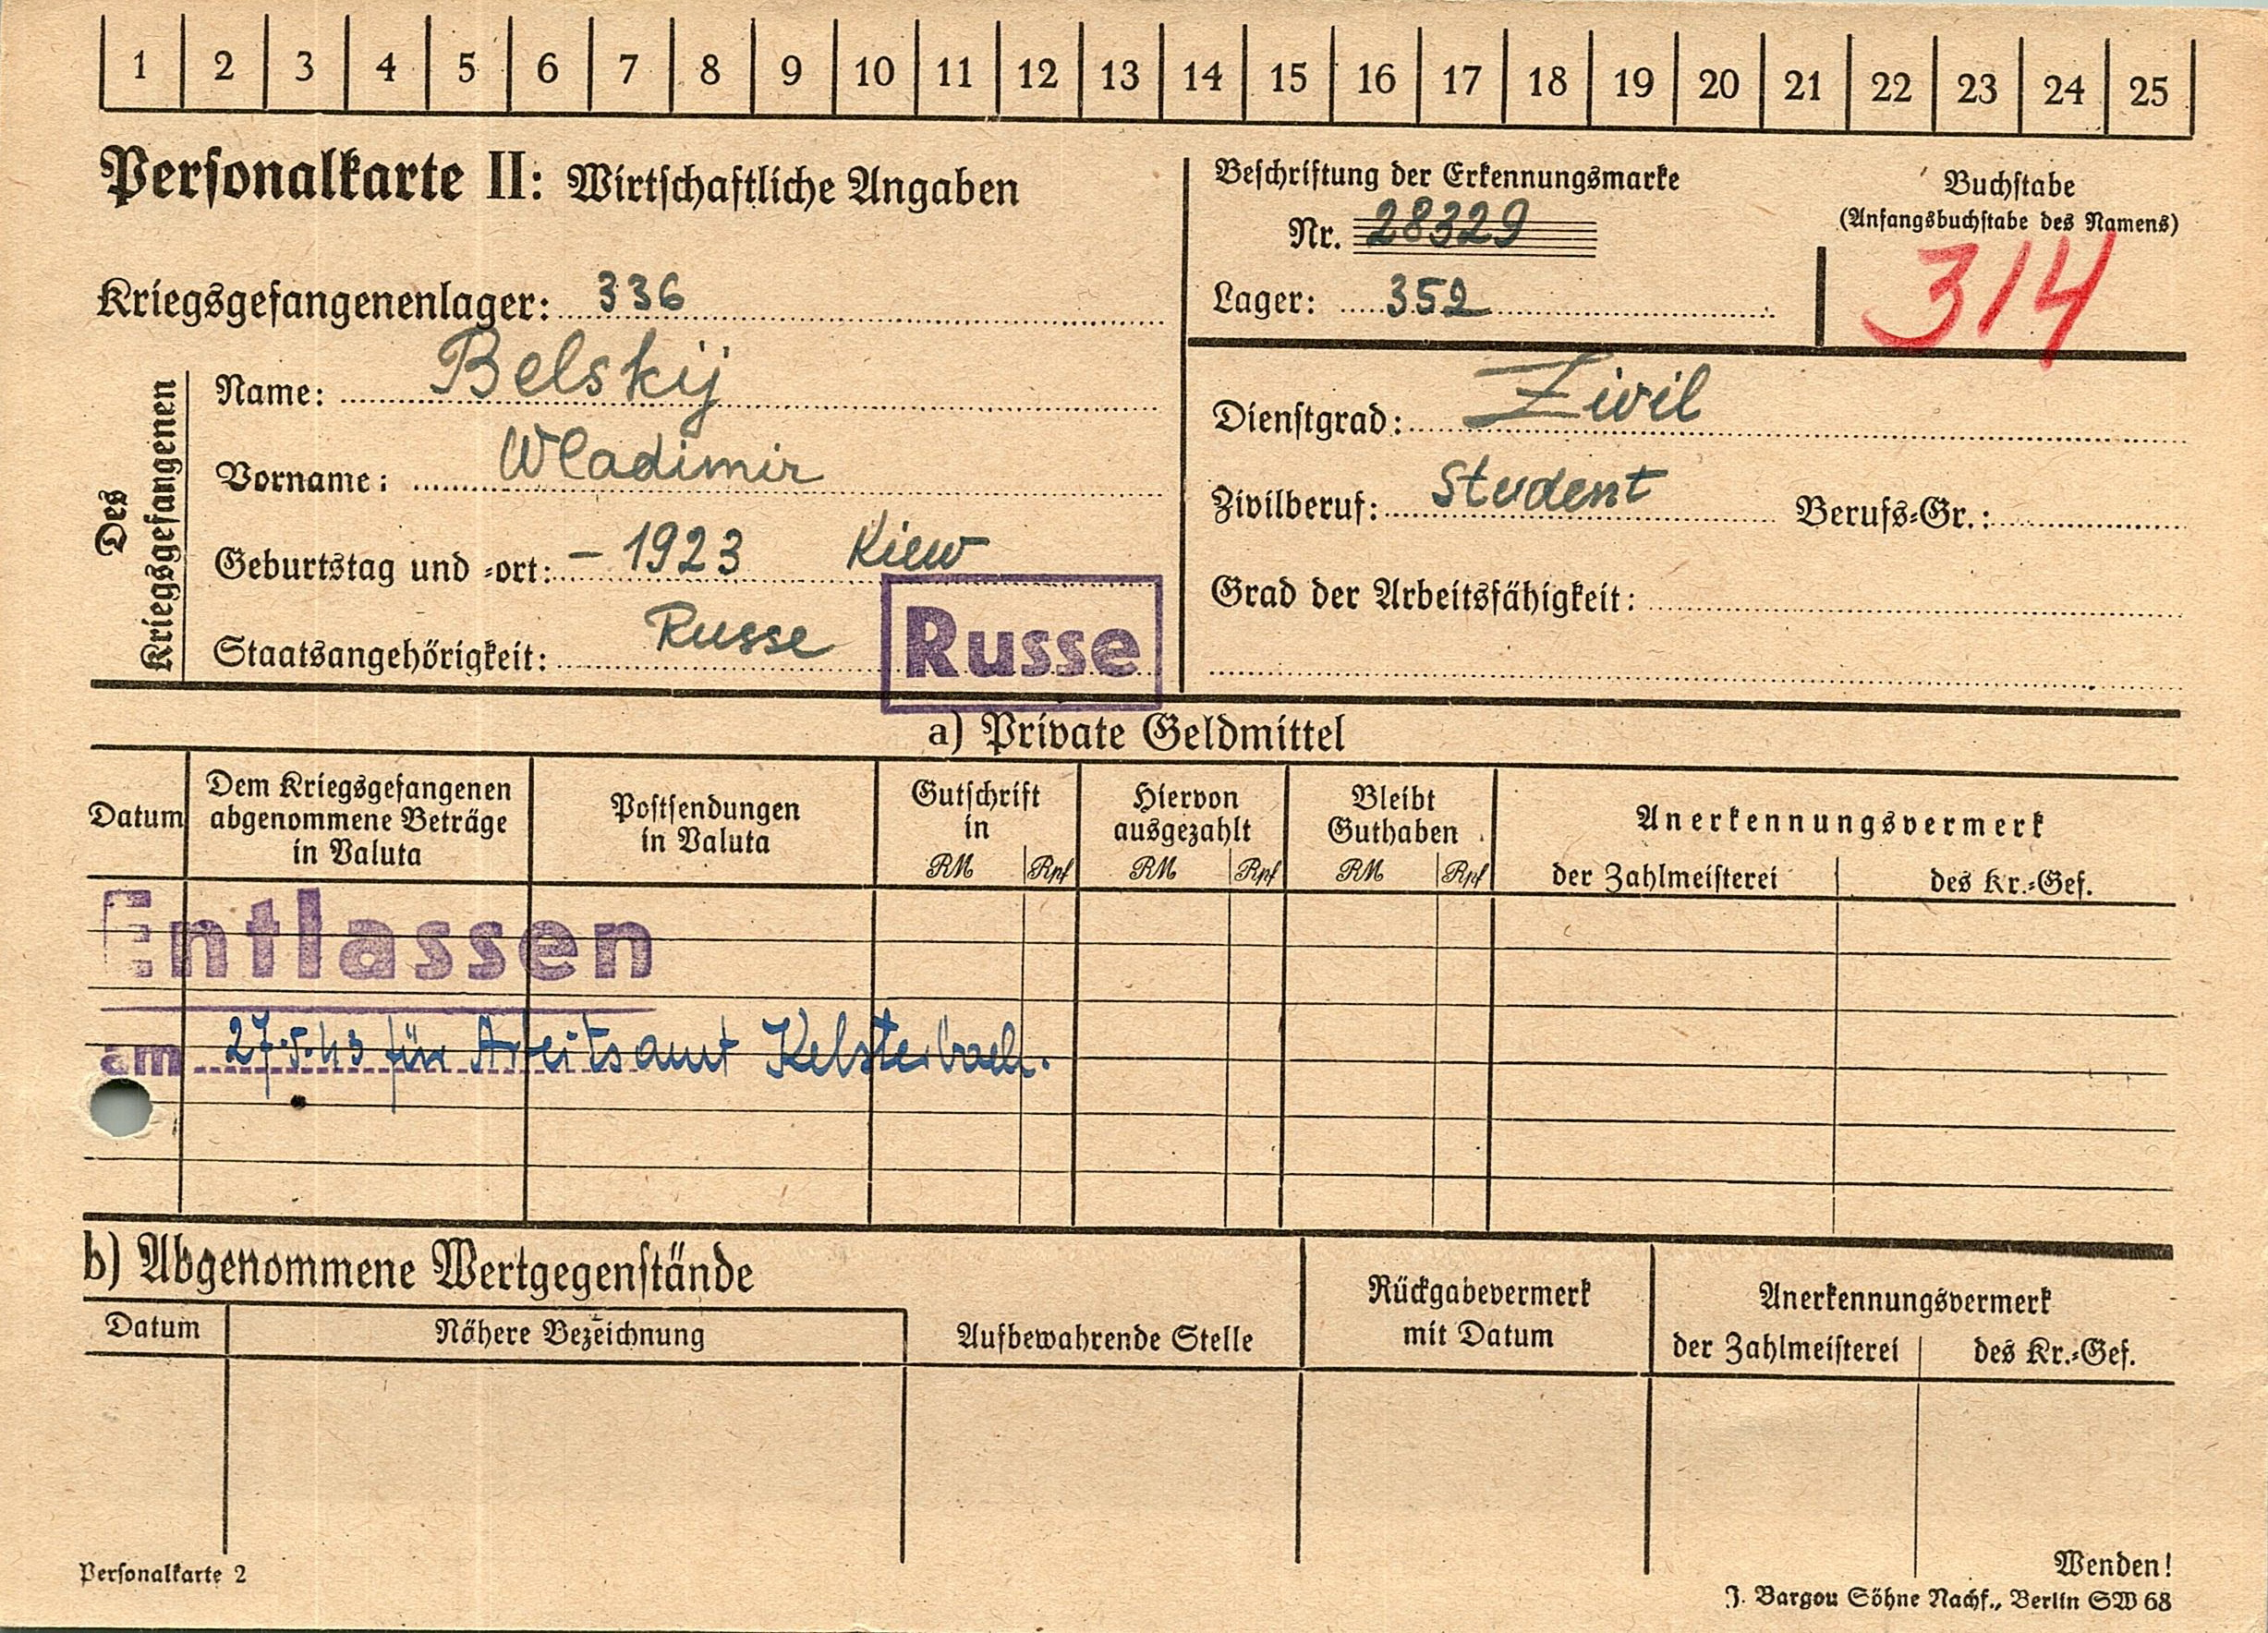 1 2 3 4 5 6 7 8 9 10 11 12 13 14 15 16 17 18 19 20 21 22 23 24 25
Personalkarte II: Wirtschaftliche Angaben
Kriegsgefangenenlager: 336
Des Kriegsgefangenen
Name: Belskij
Vorname: Wladimir
Geburtstag und =ort: – 1923 Kiew
Staatsangehörigkeit: Russe
Russe
Beschriftung der Erkennungsmarke
Nr. 28329
Lager: 352
Buchstabe
(Anfangsbuchstabe des Namens)
314
Dienstgrad: Zivil
Zivilberuf: Student Berufs=Gr.:
Grad der Arbeitsfähigkeit:
a) Private Geldmittel
Datum
Dem Kriegsgefangenen
abgenommene Beträge
in Valuta
Postsendungen
in Valuta
Gutschrift
in
RM Rpf
Hiervon
ausgezahlt
RM Rpf
Bleibt
Guthaben
RM Rpf
Anerkennungsvermerk
der Zahlmeisterei
des Kr.=Gef.
Entlassen
am 27.5.43 für Arbeitsamt Kelsterbach.
b) Abgenommene Wertgegenstände
Datum
Nähere Bezeichnung
Aufbewahrende Stelle
Rückgabevermerk
mit Datum
Anerkennungsvermerk
der Zahlmeisterei
des Kr.=Gef.
Personalkarte 2
Wenden!
J. Bargou Söhne Nachf., Berlin SW 68